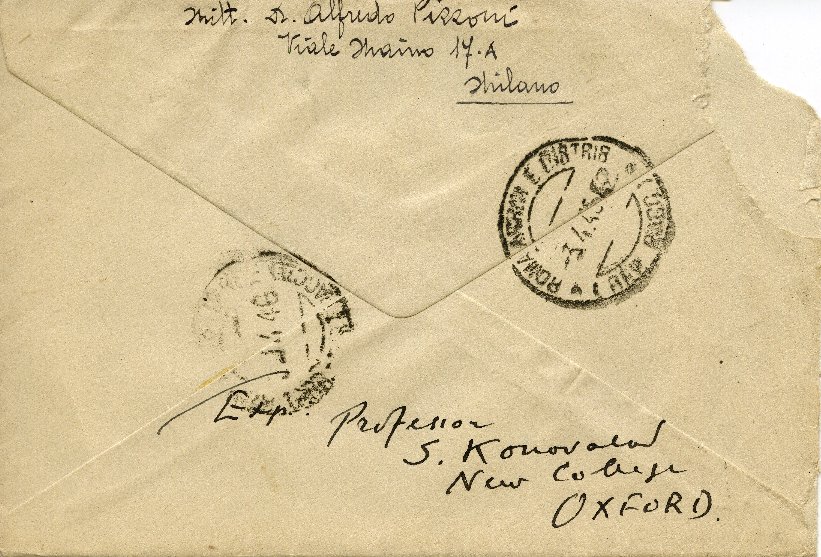 Mitt. A. Alfredo Pizzoni
Viale Maino 17.A
Milano
ROMA ARRIVI E DISTRIB
3.4.46
4.46
Exp. Professor
S. Konovalov
New College
OXFORD.